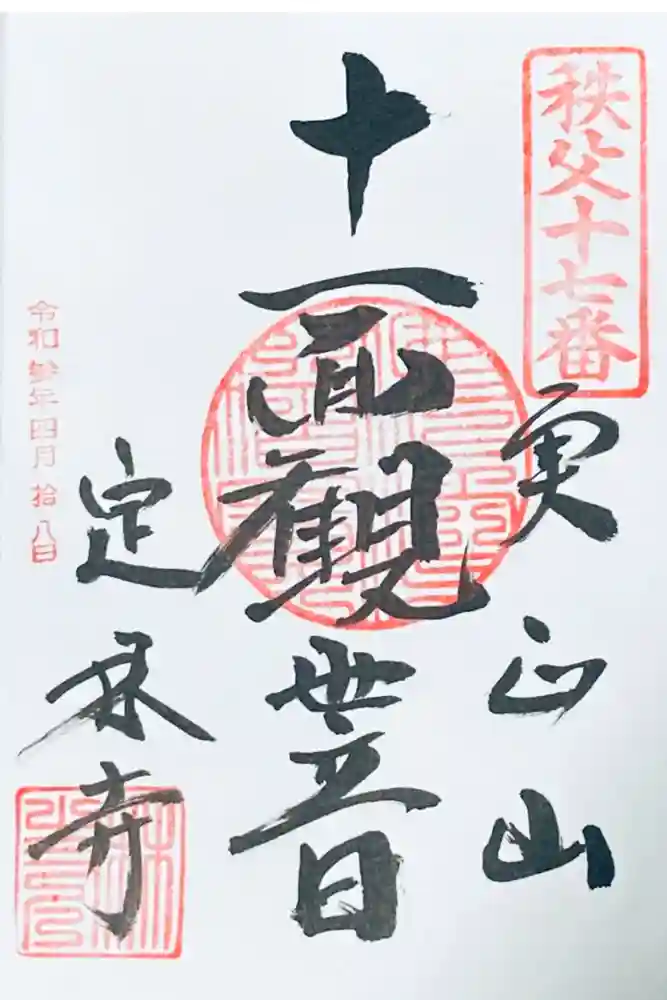 秩父十七番
実正山
十一面觀世音
定林寺
令和参年四月拾八日